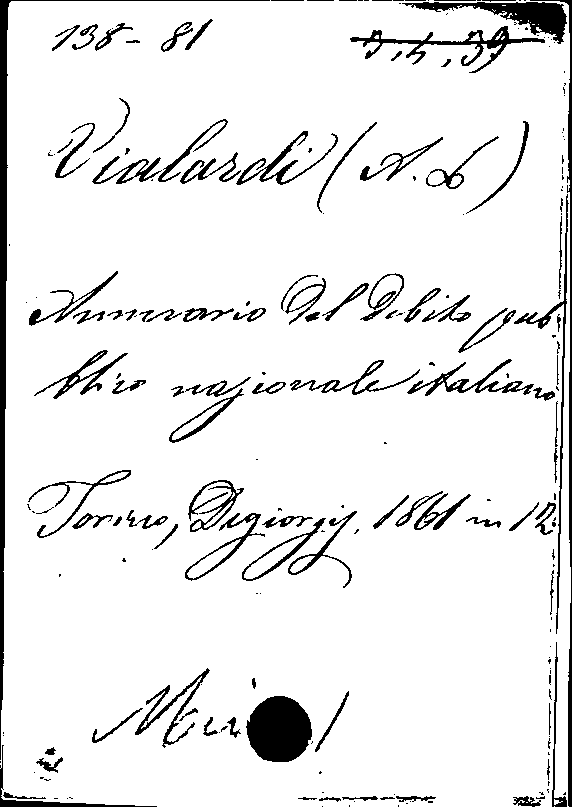 138-81 3.4.39
Vialardi (A. L)
Annuario del Debito pub-
blico nazionale italiano
Torino, Degiorgis, 1861 in 12